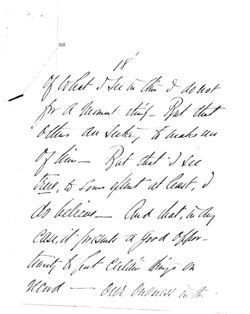 18
of what I see in this I do not
for a moment think - But that
others are seeking to make use
of him - But that I see
true, to some extent at least, I
do believe - And that, in any
case, it presents a good oppor-
tunity to put certain things on
record - our in the